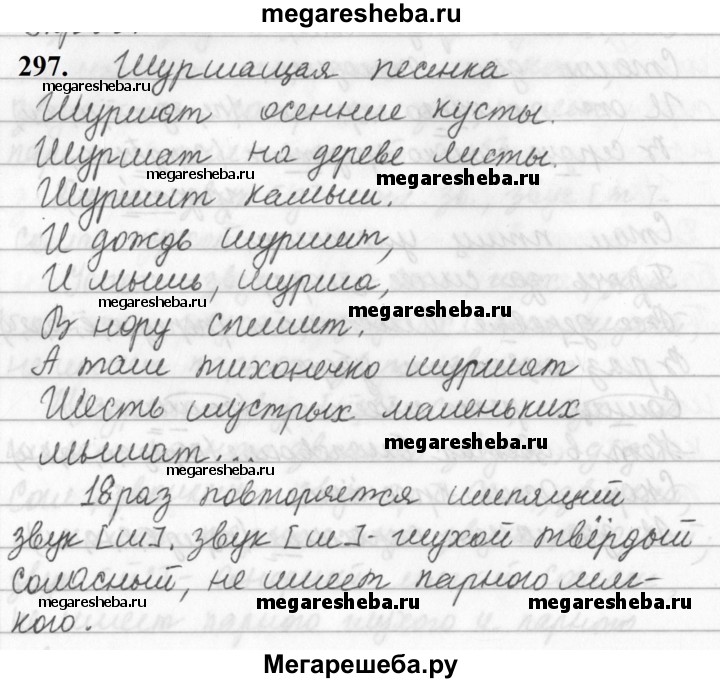 megaresheba.ru
297. Шуршащая песенка
megaresheba.ru
Шуршат осенние кусты.
megaresheba.ru
Шуршат на дереве листы.
megaresheba.ru
megaresheba.ru
Шуршит камыш.
И дождь шуршит,
И мышь, шурша,
megaresheba.ru
megaresheba.ru
В нору спешит.
А там тихонечко шуршат
Шесть шустрых маленьких
megaresheba.ru
мышат...
megaresheba.ru
18 раз повторяется шипящий
звук [ш]. звук [ш] - глухой твёрдый
согласный, не имеет парного мяг-
megaresheba.ru megaresheba.ru megaresheba.ru
кого.
Мегарешеба.ру